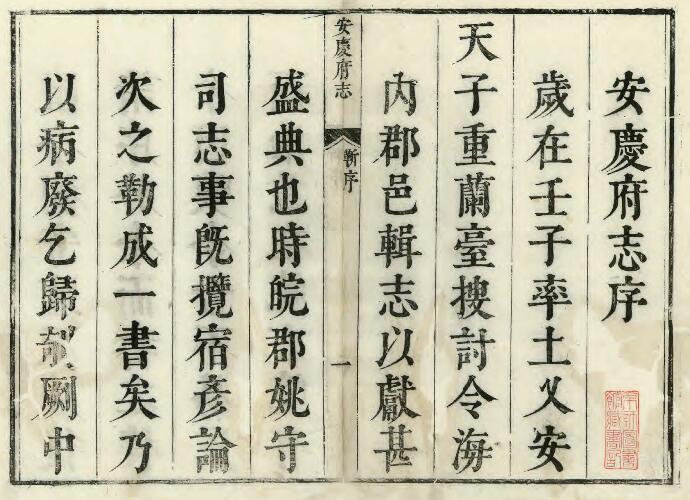 安慶府志序
歲在壬子率土乂安
天子重蘭臺搜討令海
內郡邑輯志以獻甚
安慶府志
靳序
一
盛典也時皖郡姚守
司志事旣攬宿彥論
次之勒成一書矣乃
以病廢乞歸厥中